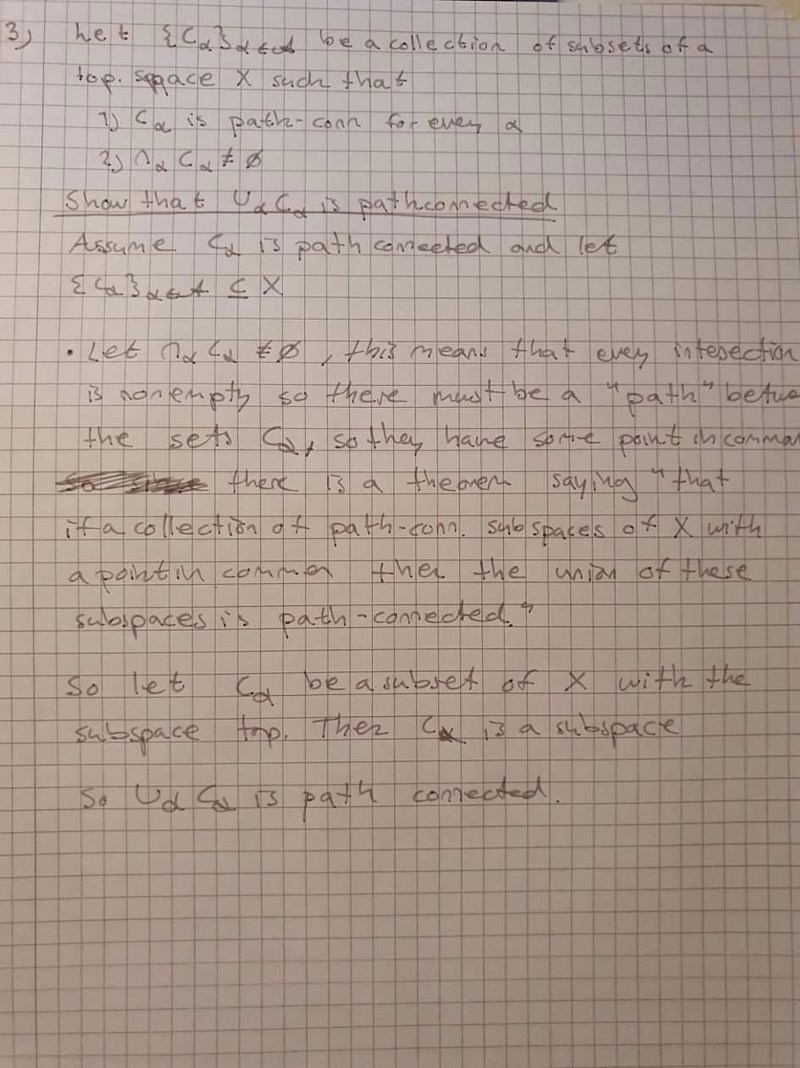 3) Let {Cα}α∈A be a collection of subsets of a
top. space X such that
1) Cα is path-conn for every α
2) ∩α Cα ≠ ∅
Show that ∪α Cα is pathconnected
Assume Cα is path connected and let
{Cα}α∈A ⊆ X
• Let ∩α Cα ≠ ∅, this means that every intesection
is nonempty so there must be a "path" betwe
the sets Cα, so they have some point in common
there is a theorem saying "that
if a collection of path-conn. subspaces of X with
a point in common then the union of these
subspaces is path-connected."
So let Cα be a subset of X with the
subspace top. Then Cα is a subspace
So ∪α Cα is path connected.